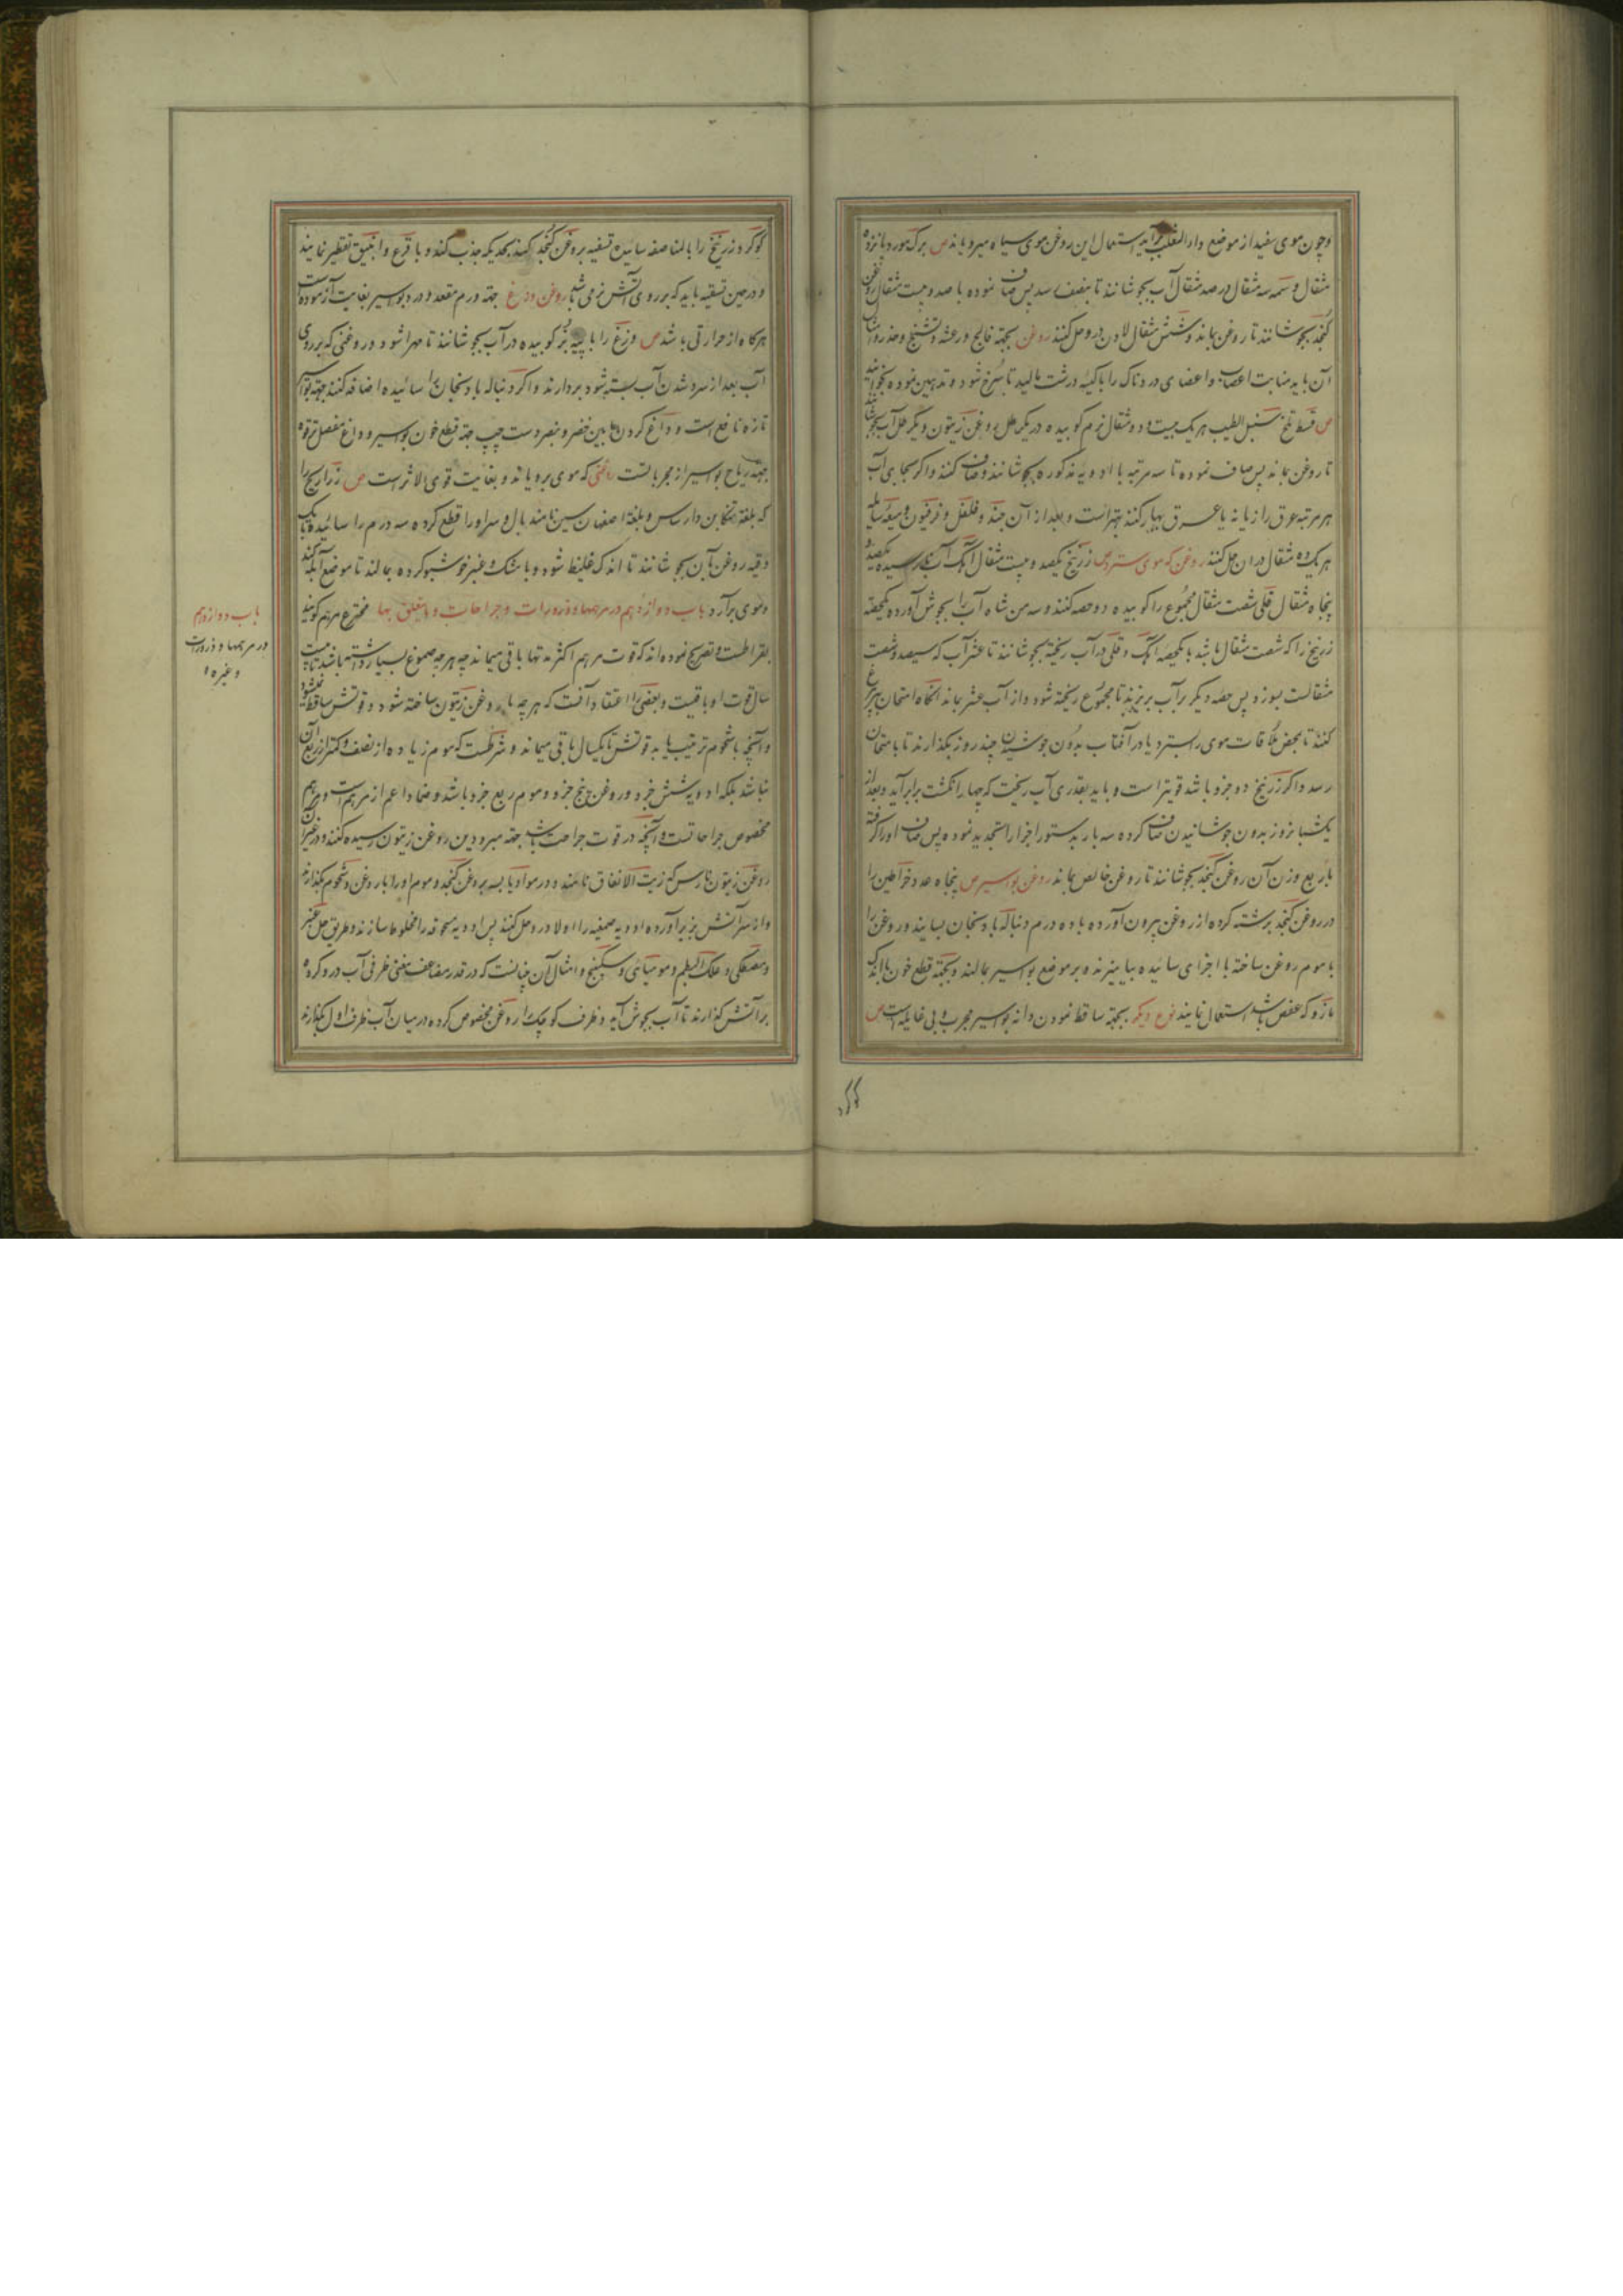 وچون موی سفید از موضع دارالثعلب برآید استعمال این روغن موی سیاه میرویاند ص برک مورد پانزده
مثقال وسمه سه مثقال در صد مثقال آب بجوشانند تا بنصف رسد پس صاف نموده با صد و بیست مثقال روغن
کنجد بجوشانند تا روغن بماند و شش مثقال لادن درو حل کنند روغن بجهته فالج و رعشه و تشنج و خدر و امثال
آن باید منابت اعصاب و اعضای دردناک را با کیسه درشت مالید تا سرخ شود و تدهین نموده
ص قسط تلخ سنبل الطیب هر یک بیست و دو مثقال نرم کوبیده در یکرطل روغن زیتون و یکرطل آب بجوشانند
تا روغن بماند پس صاف نموده تا سه مرتبه با ادویه مذکوره بجوشانند و صاف کنند و اکر بجای آب
هر مرتبه عرق رازیانه یا عرق بهار کنند بهتر است و بعد از آن جند و فلفل و فرفیون و میعه سایله
هر یک ده مثقال در ان حل کنند روغن که موی سترد ص زرنیخ یکصد و بیست مثقال آهک آب نارسیده یکصد و
پنجاه مثقال قلی شصت مثقال مجموع را کوبیده دو حصه کنند و سه من شاه آب را بجوش آورده یکحصه
زرنیخ را که شصت مثقال باشد با یکحصه آهک و قلی در آب ریخته بجوشانند تا عشر آب که سیصد و شصت
مثقالست بسوزد پس حصه دیکر بر آب بریزند تا مجموع ریخته شود و از آب عشر بماند آنکاه امتحان بپر مرغ
کنند تا بمحض ملاقات موی را بسترد یا در آفتاب بدون جوشیدن چند روز بکذارند تا بامتحان
رسد و اکر زرنیخ دو جزو باشد قویتر است و باید بقدری آب ریخت که چهار انکشت برابر آید و بعد از
یکشبانروز بدون جوشانیدن صاف کرده سه بار بدستور اجزا را تجدید نموده پس صاف او را کرفته
با ربع وزن آن روغن کنجد بجوشانند تا روغن خالص بماند روغن بواسیر ص پنجاه عدد خراطین را
در روغن کنجد برشته کرده از روغن بیرون آورده با ده درم دنباله بادنجان بسایند و روغن را
با موم روغن ساخته با اجزای سائیده بیامیزند و بر موضع بواسیر بمالند و بجهته قطع خون با اندک
مازو که عفص باشد استعمال نمایند نوع دیکر بجهته ساقط نمودن دانه بواسیر مجرب و بی غایله است ص
کوکرد و زرنیخ را بالمناصفه سائیده تسقیه بروغن کنجد کنند بحدیکه جذب کند و با قرع و انبیق تقطیر نمایند
و در حین تسقیه باید که بر روی آتش نرمی باشد روغن وزغ جهته ورم مقعد و درد بواسیر بغایت آزموده است
هرکاه از حرارتی باشد ص وزغ را با پیه بز کوبیده در آب بجوشانند تا مهرا شود و روغنی که بر روی
آب بعد از سرد شدن آب بسته شود بردارند و اکر دنباله بادنجان را سائیده اضافه کنند جهته بواسیر
تازه نافع است و داغ کردن مابین خنصر و بنصر دست چپ جهته قطع خون بواسیر و داغ مفصل ترقوه
جهته ریاح بواسیر از مجرباتست روغنی که موی برویاند و بغایت قوی الاثر است ص زراریح را
که بلغة تنکابن دارساس و بلغة اصفهان سین نامند بال و سر او را قطع کرده سه درم را سائیده با یک
وقیه روغن بان بجوشانند تا اندک غلیظ شود و با مشک و عنبر خوشبو کرده بمالند تا موضع آبله کند
و موی برآرد باب دوازدهم در مرهمها و ذرورات و جراحات و مایتعلق بها مخترع مرهم کویند
بقراطست و تصریح نموده اند که قوت مرهم اکثر مدتها باقی میماند چه هرچه صموغ بسیار داشته باشد تا بیست
سال قوت او باقیست و بعضی را اعتقاد آنست که هرچه با روغن زیتون ساخته شود قوتش ساقط نمیشود
و آنچه با شحوم ترتیب یابد قوتش تا یکسال باقی میماند و شرطست که موم زیاده از نصف و کمتر از ربع آن
نباشد بلکه ادویه شش جزو و روغن پنج جزو و موم ربع جزو باشد و ضماد اعم از مرهم است و مرهم
مخصوص جراحاتست و آنچه در قوت جراحت باشد جهته مبرودین روغن زیتون رسیده کنند و در غیر آن
روغن زیتون نارس که زیت الانفاق نامند و در مواد یابسه بروغن کنجد و موم او را با روغن و شحوم بکدازند
و از سر آتش بزیر آورده ادویه صمغیه را اولا درو حل کنند پس ادویه مسحوقه را مخلوط سازند و طریق حل عنبر
و مصطکی و علک البطم و مومیائی و سکبینج و امثال آن چنانست که در قدر مضاعف یعنی ظرفی آب درو کرده
بر آتش کذارند تا آب بجوش آید و ظرف کوچک را روغن مخصوص کرده در میان آب ظرف اول بکذارند
باب دوازدهم
در مرهمها و ذرورات
و غیره